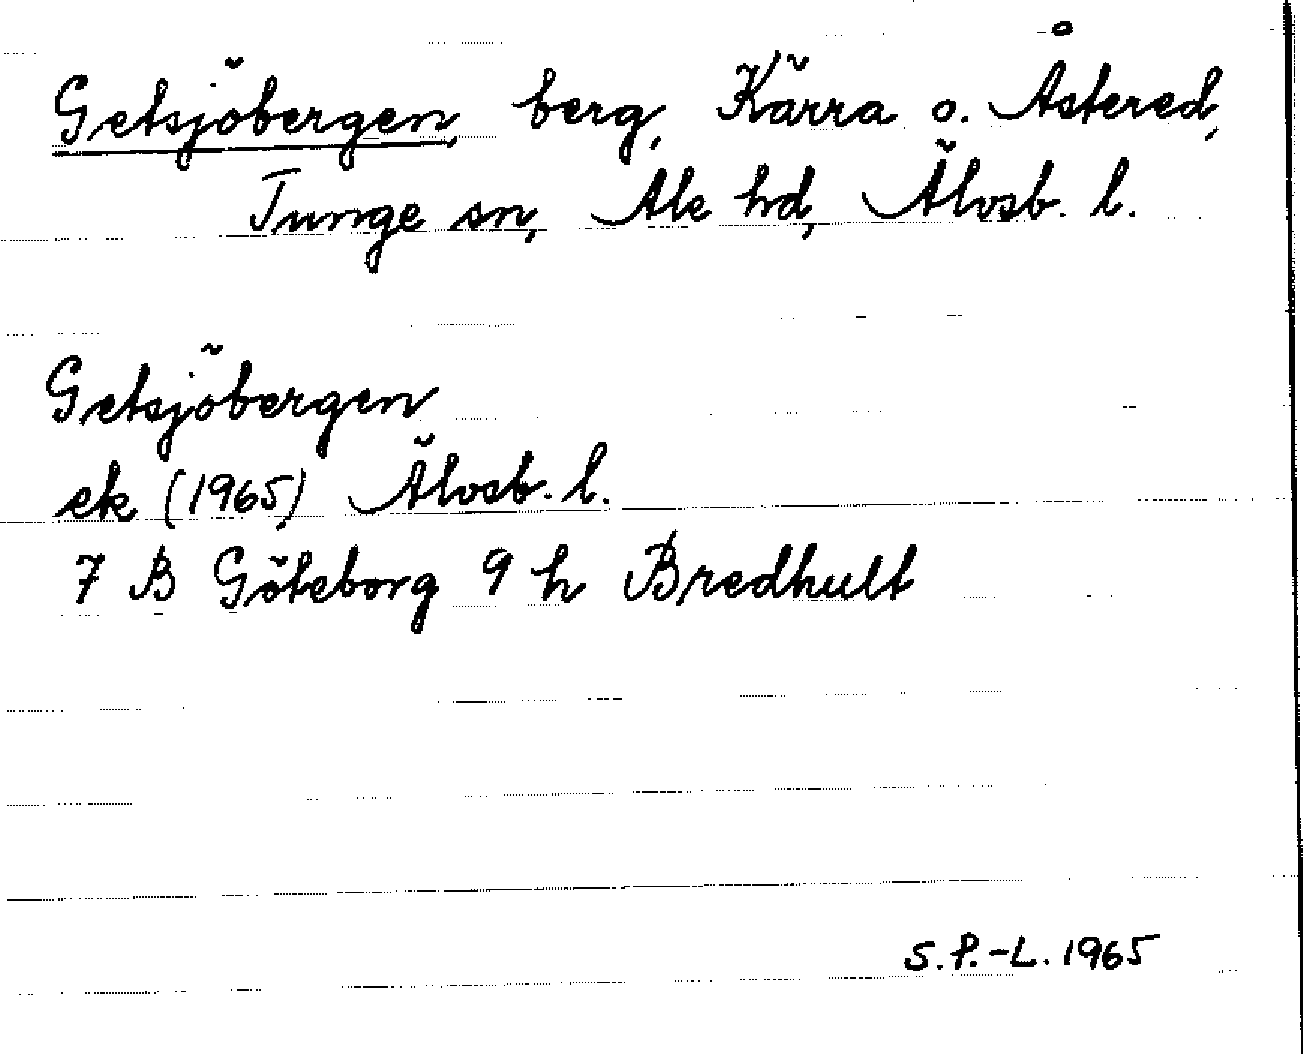 Getsjöbergen, berg, Kärra o. Åstered,
Tunge sn, Ale hd, Älvsb. l.
Getsjöbergen
ek (1965) Älvsb. l.
7 B Göteborg 9 h Bredhult
S.P.-L. 1965